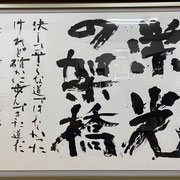 栄光
の架橋
決して平らな道ではなかった
けれど確かに歩んできた道だ